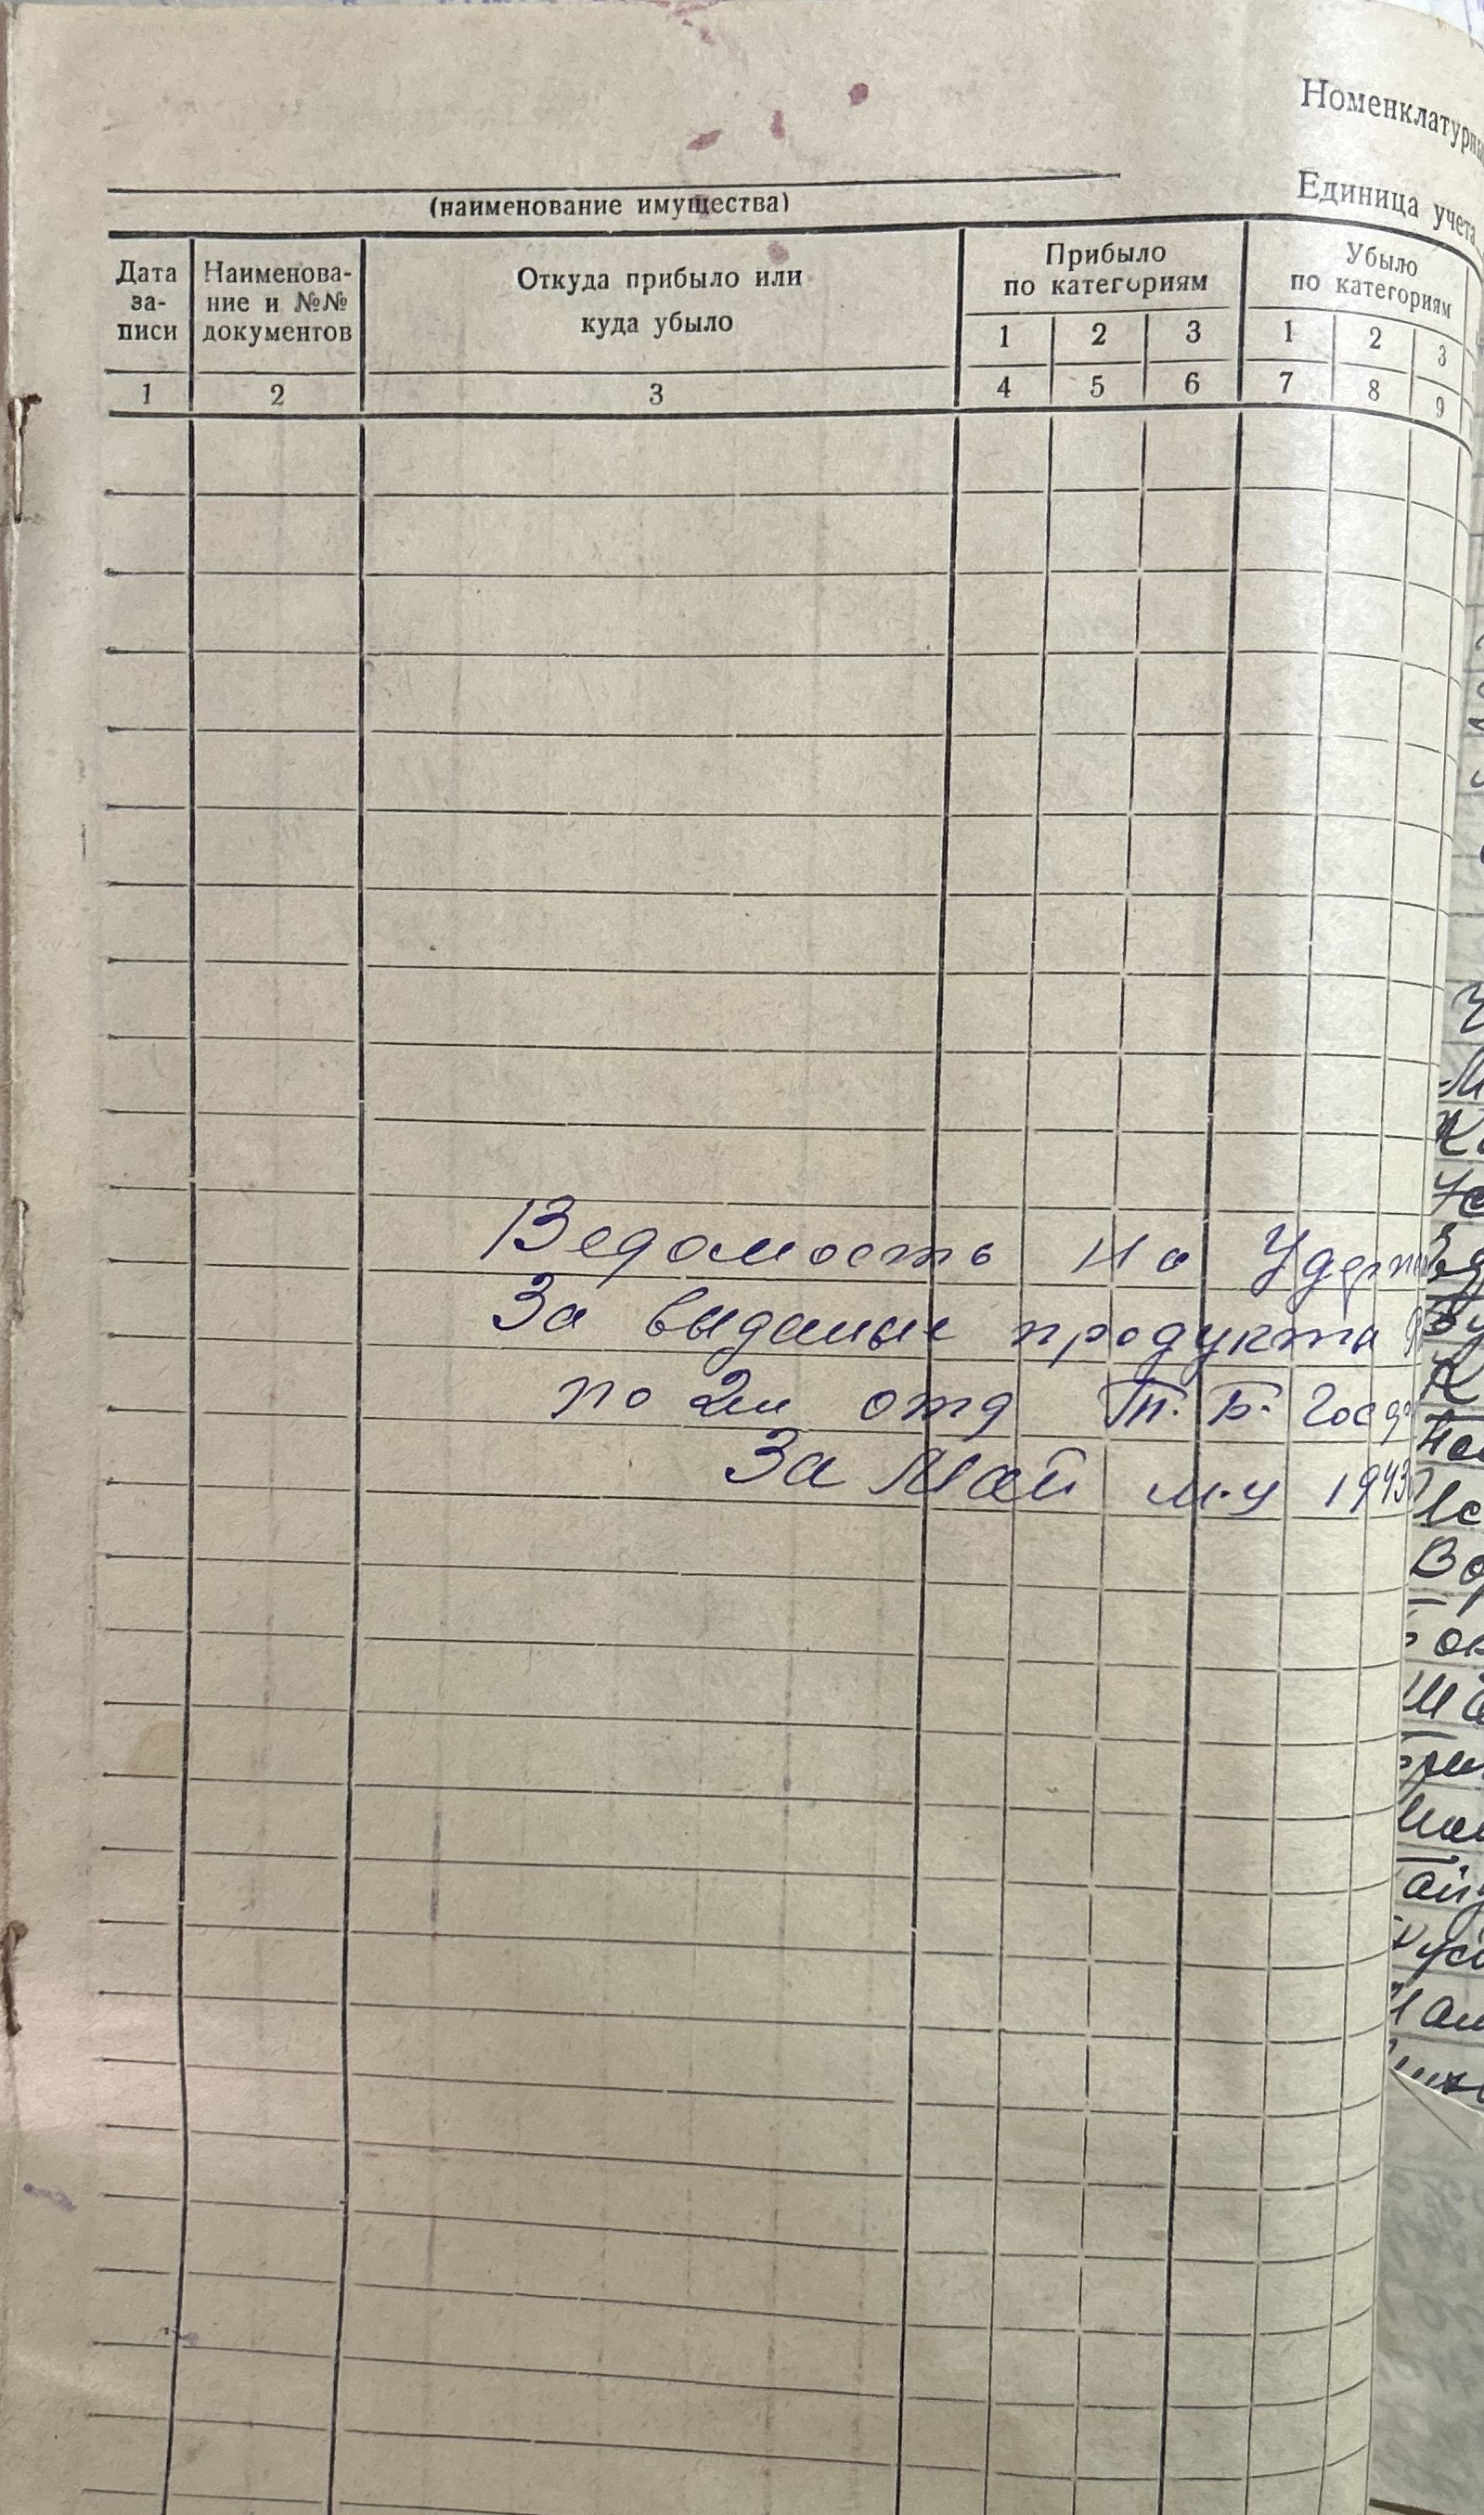 Номенклатурны
Единица учета
(наименование имущества)
Дата за- писи
Наименова- ние и №№ документов
Откуда прибыло или куда убыло
Прибыло по категориям
Убыло по категориям
1 2 3 1 2 3
1 2 3 4 5 6 7 8 9
Ведомость На Удерж
За выданые продукты
по 2м отд Т. Б. Госд
За Май м-ц 1943